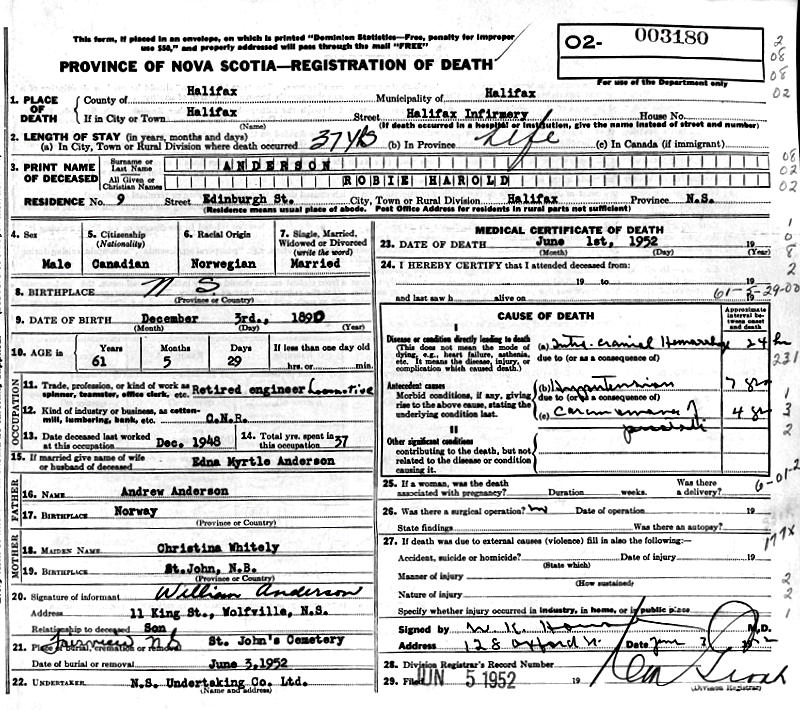 This form, if placed in an envelope, on which is printed "Dominion Statistics—Free, penalty for improper
use $50," and properly addressed will pass through the mail "FREE"
PROVINCE OF NOVA SCOTIA—REGISTRATION OF DEATH
O2- 003180
For use of the Department only
2
08
08
02
1. PLACE OF DEATH
County of Halifax Municipality of Halifax
If in City or Town Halifax Street Halifax Infirmery House No.
(Name) (If death occurred in a hospital or institution, give the name instead of street and number)
2. LENGTH OF STAY (in years, months and days)
(a) In City, Town or Rural Division where death occurred 37 yrs (b) In Province Life (c) In Canada (if immigrant)
3. PRINT NAME OF DECEASED
Surname or Last Name ANDERSON
All Given or Christian Names ROBIE HAROLD
08
02
02
RESIDENCE No. 9 Street Edinburgh St. City, Town or Rural Division Halifax Province N.S.
(Residence means usual place of abode. Post Office Address for residents in rural parts not sufficient)
4. Sex
Male
5. Citizenship
(Nationality)
Canadian
6. Racial Origin
Norwegian
7. Single, Married, Widowed or Divorced
(write the word)
Married
8. BIRTHPLACE N S.
(Province or Country)
9. DATE OF BIRTH December 3rd., 1890
(Month) (Day) (Year)
10. AGE in
Years Months Days If less than one day old
61 5 29 hrs. or min.
OCCUPATION
11. Trade, profession, or kind of work as spinner, teamster, office clerk, etc. Retired engineer Locomotive
12. Kind of industry or business, as cotton-mill, lumbering, bank, etc. C.N.R.
13. Date deceased last worked at this occupation Dec. 1948
14. Total yrs. spent in this occupation 37
15. If married give name of wife or husband of deceased Edna Myrtle Anderson
FATHER
16. NAME Andrew Anderson
17. BIRTHPLACE Norway
(Province or Country)
MOTHER
18. MAIDEN NAME Christina Whitely
19. BIRTHPLACE St.John, N.B.
(Province or Country)
20. Signature of informant William Anderson
Address 11 King St., Wolfville, N.S.
Relationship to deceased Son
21. Place of burial, cremation or removal Fairview N S St. John's Cemetery
Date of burial or removal June 3,1952
22. UNDERTAKER N.S. Undertaking Co. Ltd.
(Name and address)
MEDICAL CERTIFICATE OF DEATH
23. DATE OF DEATH June 1st, 1952 19
(Month) (Day) (Year)
24. I HEREBY CERTIFY that I attended deceased from:
19 to 19
61-5-29-00
and last saw h alive on 19
CAUSE OF DEATH
Approximate interval between onset and death
I
Disease or condition directly leading to death
(This does not mean the mode of dying, e.g., heart failure, asthenia, etc. It means the disease, injury, or complication which caused death.)
(a) Intra-cranial Hemorrhage 24 hr
due to (or as a consequence of)
231
Antecedent causes
Morbid conditions, if any, giving rise to the above cause, stating the underlying condition last.
(b) Hypertension 7 yrs
due to (or as a consequence of)
(c) Carcinoma of prostate 4 yrs
II
Other significant conditions
contributing to the death, but not related to the disease or condition causing it.
25. If a woman, was the death associated with pregnancy? Duration weeks. Was there a delivery?
26. Was there a surgical operation? Date of operation 19
State findings Was there an autopsy?
177X
27. If death was due to external causes (violence) fill in also the following:—
Accident, suicide or homicide? Date of injury 19
(State which)
Manner of injury
(How sustained)
Nature of injury
Specify whether injury occurred in industry, in home, or in public place
Signed by M.D.
Address 128 Oxford St. Date June
28. Division Registrar's Record Number
29. Filed JUN 5 1952 19
(Division Registrar)